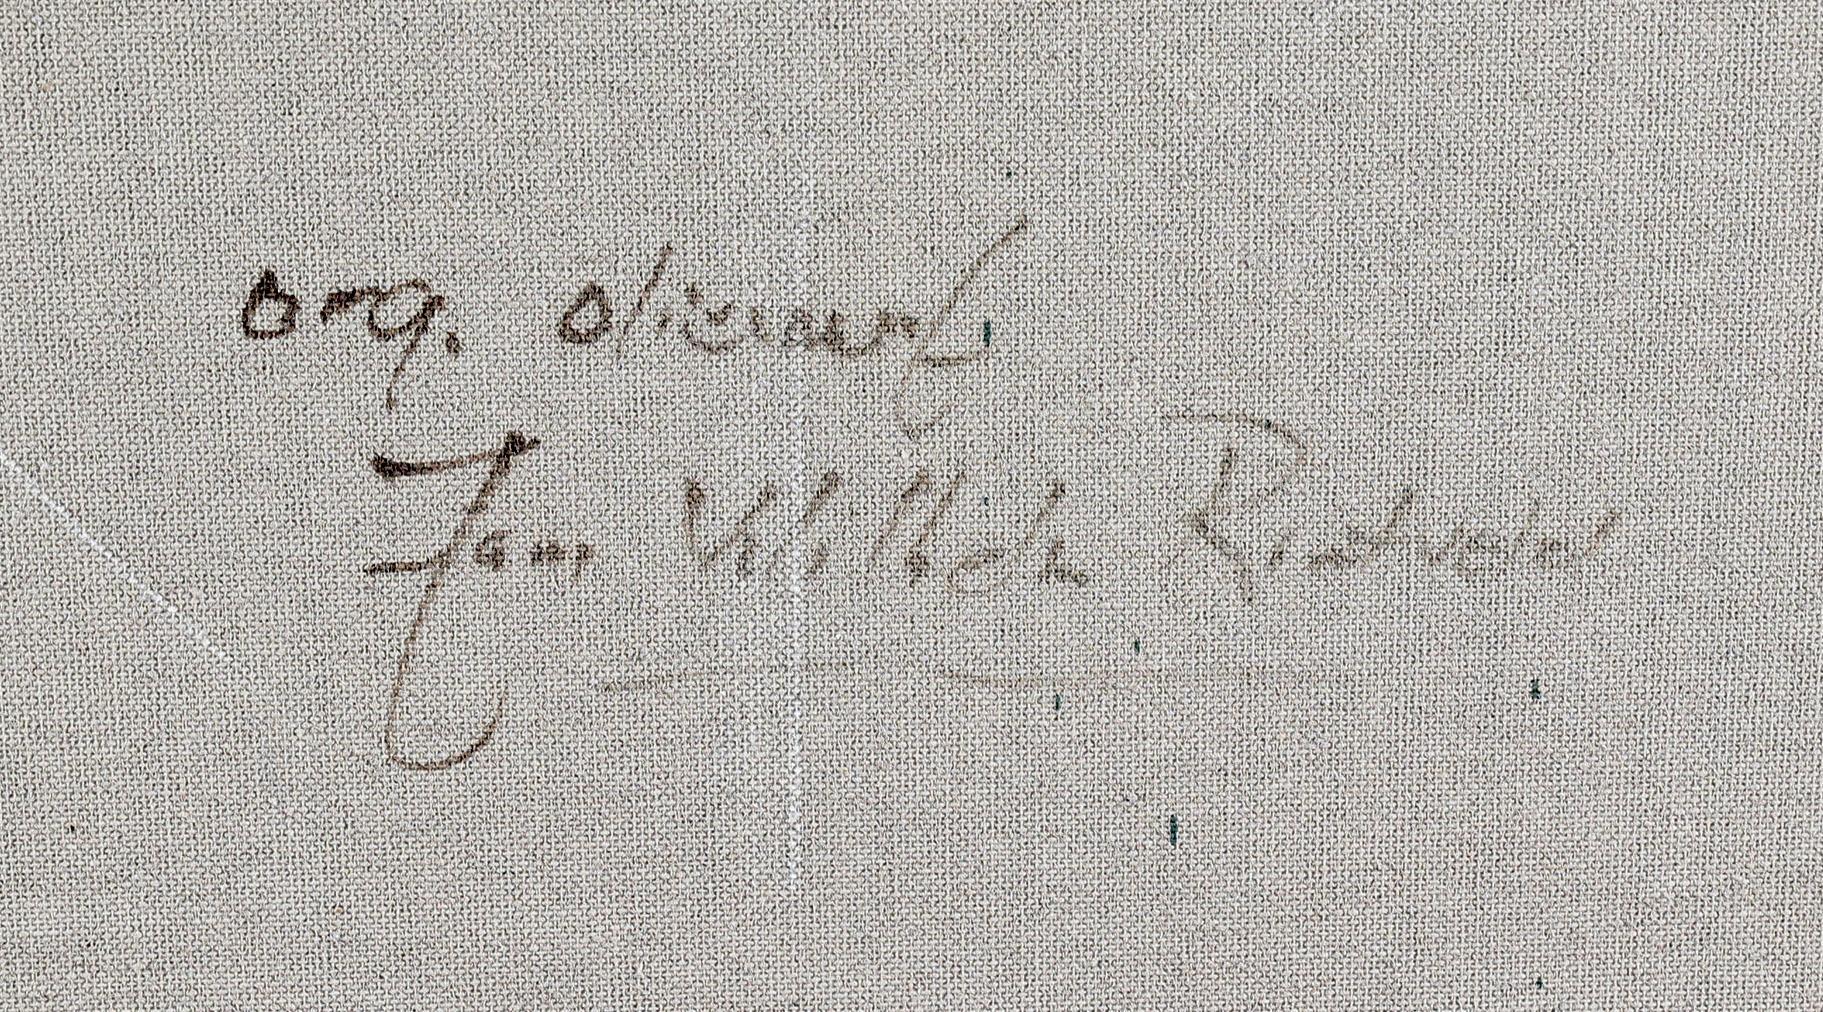 org. olieverf
Jan Willem